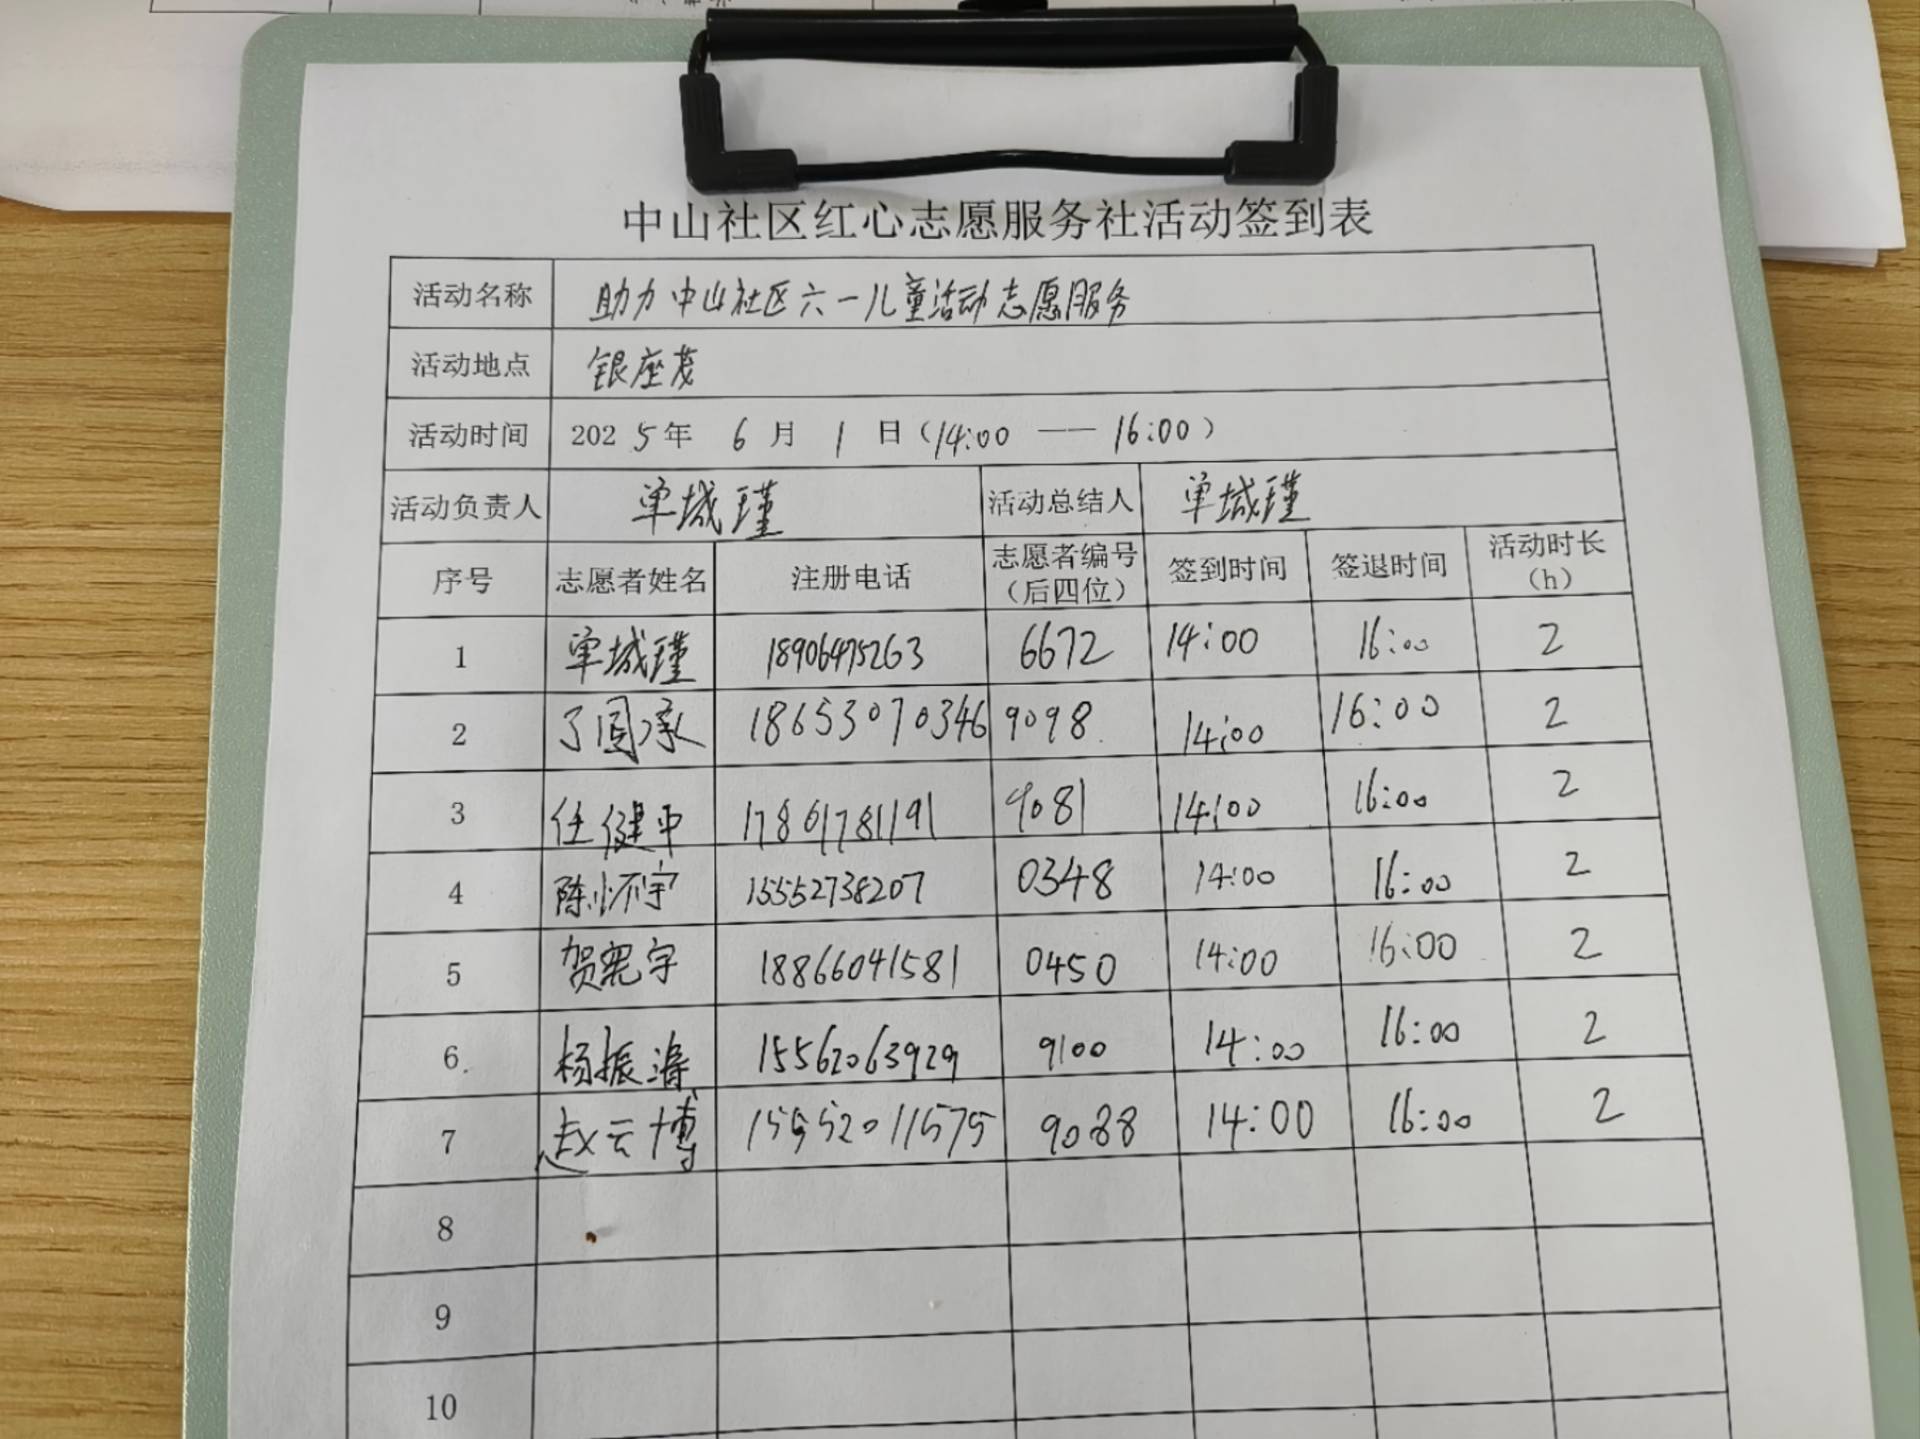 中山社区红心志愿服务社活动签到表
活动名称 助力中山社区六一儿童活动志愿服务
活动地点 银座茂
活动时间 2025年 6月 1日(14:00 — 16:00)
活动负责人 单城瑾 活动总结人 单城瑾
序号 志愿者姓名 注册电话 志愿者编号(后四位) 签到时间 签退时间 活动时长(h)
1 单城瑾 18906475263 6672 14:00 16:00 2
2 18653070346 9098 14:00 16:00 2
3 任健中 17861781191 9081 14:00 16:00 2
4 陈怀宇 15552738207 0348 14:00 16:00 2
5 贺宽宇 18866041581 0450 14:00 16:00 2
6 杨振涛 15562063929 9100 14:00 16:00 2
7 赵云博 15552011575 9088 14:00 16:00 2
8
9
10